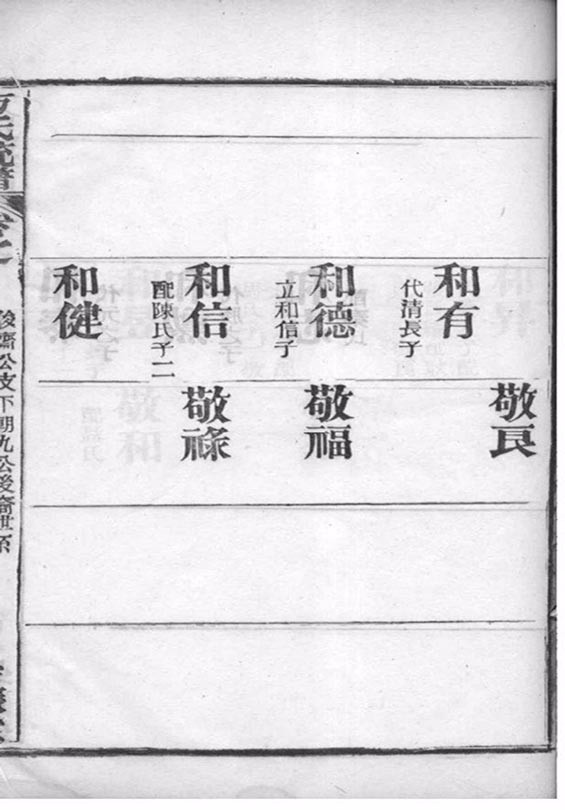 敬良
和有
代清長子
和德
立和信子
敬福
和信
配陳氏子二
敬祿
和健
氏統譜
卷之
後裔公支下朝九公後裔世系